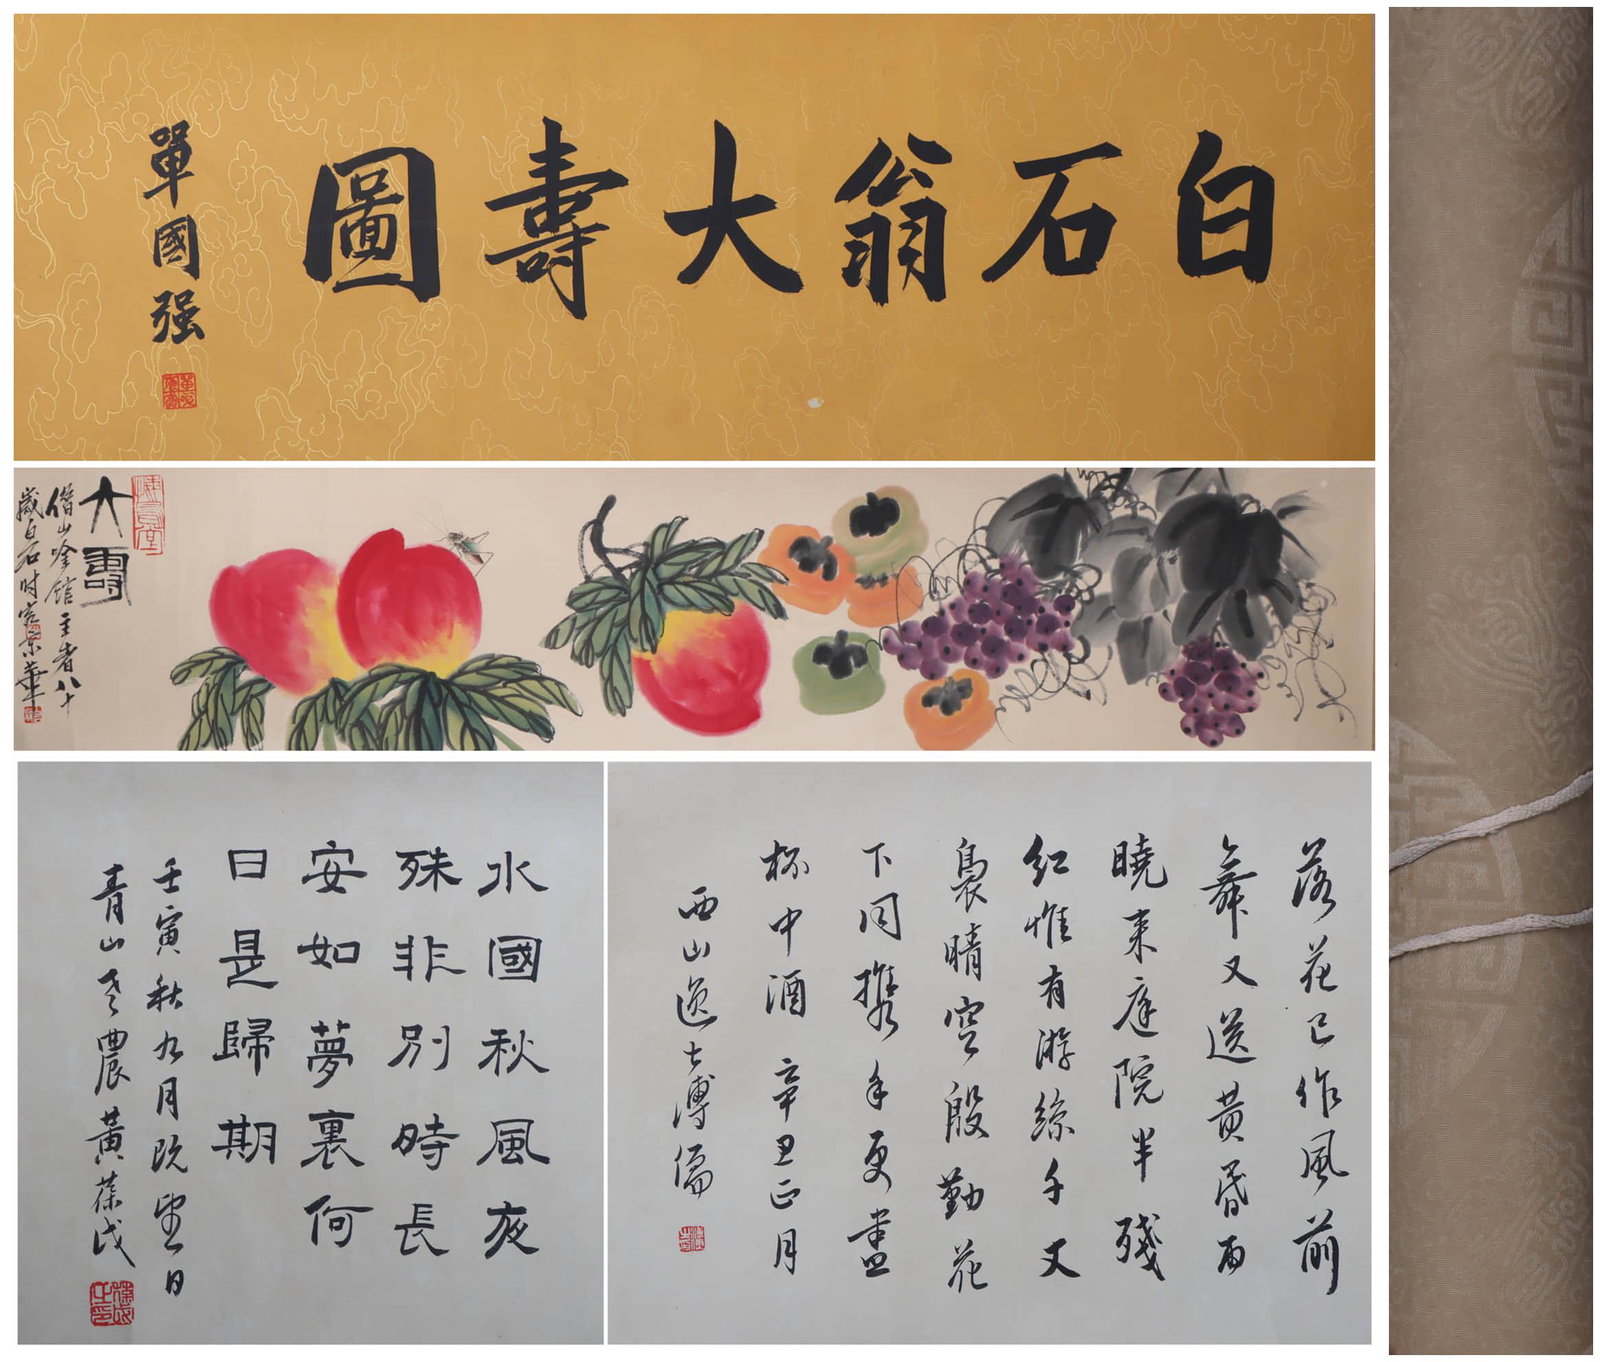 白石翁大壽圖
單國强
大壽
借山吟館主者八十
歲白石時客京華
落花已作風前
舞又送黃昏雨
曉來庭院半殘
紅惟有游絲千丈
裊晴空殷勤花
下同攜手更盡
杯中酒 辛丑正月
西山逸士溥儒
水國秋風夜
殊非別時長
安如夢裏何
日是歸期
壬寅秋九月既望日
青山老農黃葆戉